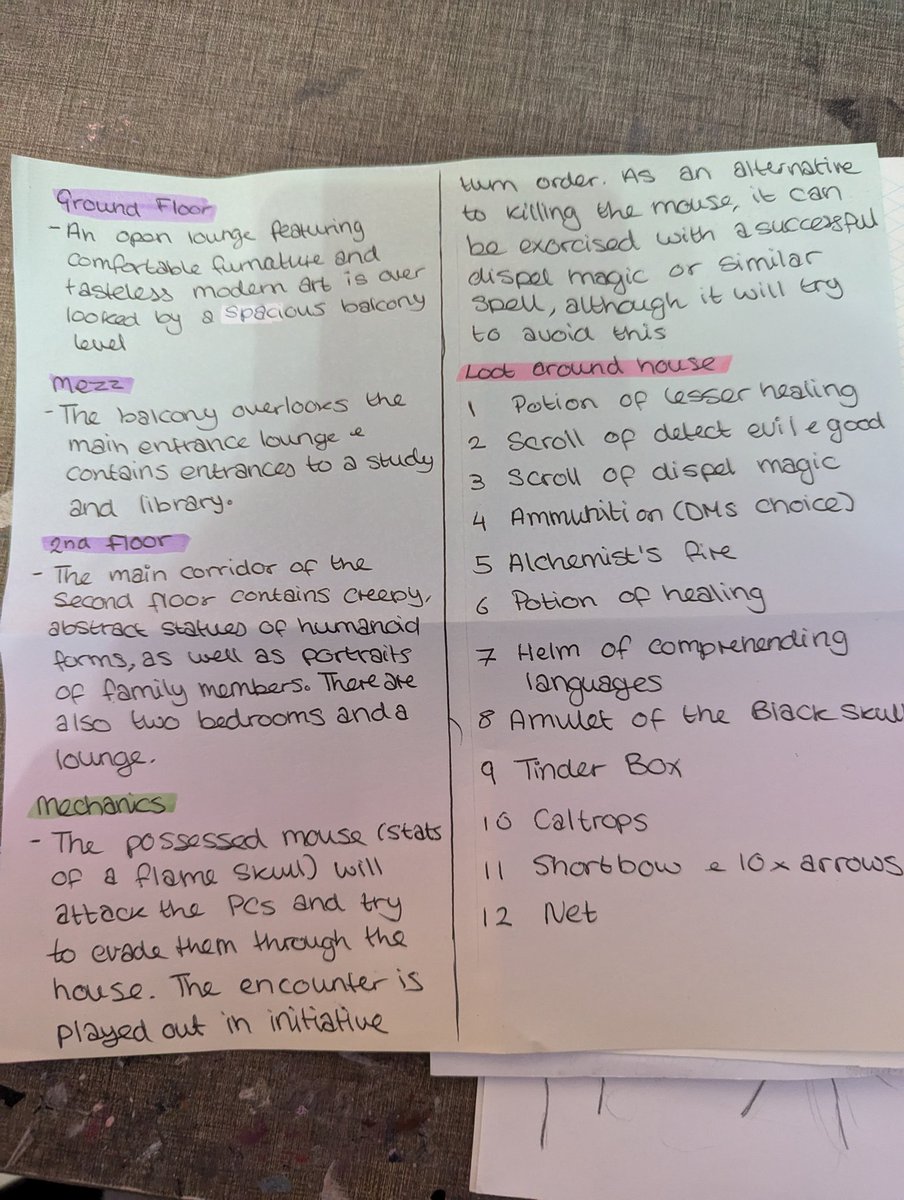 Ground Floor
- An open lounge featuring
comfortable furnature and
tasteless modern art is over
looked by a spacious balcony
level
Mezz
- The balcony overlooks the
main entrance lounge e
contains entrances to a study
and library.
2nd Floor
- The main corridor of the
second floor contains creepy,
abstract statues of humanoid
forms, as well as portraits
of family members. There are
also two bedrooms and a
lounge.
Mechanics
- The possessed mouse (stats
of a flame skull) will
attack the PCs and try
to evade them through the
house. The encounter is
played out in initiative
turn order. As an alternative
to killing the mouse, it can
be exorcised with a successful
dispel magic or similar
spell, although it will try
to avoid this
Loot around house
1 Potion of lesser healing
2 Scroll of detect evil e good
3 Scroll of dispel magic
4 Ammunition (DMs choice)
5 Alchemist's fire
6 Potion of healing
7 Helm of comprehending
languages
8 Amulet of the Black Skull
9 Tinder Box
10 Caltrops
11 Shortbow e 10x arrows
12 Net